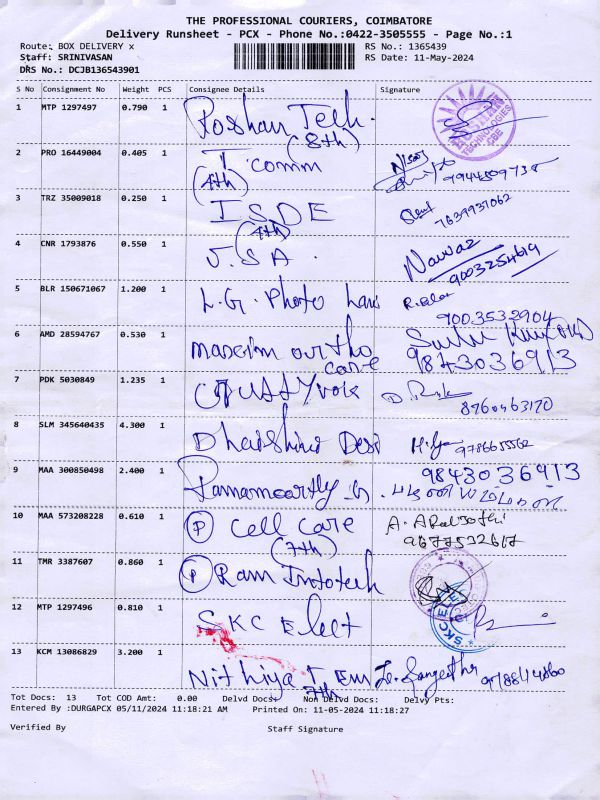 THE PROFESSIONAL COURIERS, COIMBATORE
Delivery Runsheet - PCX - Phone No.:0422-3505555 - Page No.:1
Route: BOX DELIVERY x RS No.: 1365439
Staff: SRINIVASAN RS Date: 11-May-2024
DRS No.: DCJB136543901
S No Consignment No Weight PCS Consignee Details Signature
1 MTP 1297497 0.790 1 Roshan Tech.
(8th)
2 PRO 16449004 0.405 1 T. comm
(4th)
3 TRZ 35009018 0.250 1 ISDE 7639937062
(4th)
4 CNR 1793876 0.550 1 J.S.A. Nawaz
9003254619
5 BLR 150671067 1.200 1 L.G. Photo
9003532904
6 AMD 28594767 0.530 1 ourtho care
9843036913
7 PDK 5030849 1.235 1
8760463170
8 SLM 345640435 4.300 1 9786655562
9 MAA 300850498 2.400 1 9843036913
10 MAA 573208228 0.610 1 (P) cell care
(7th) 9677532617
11 TMR 3387607 0.860 1 (P) Ram Infotech
12 MTP 1297496 0.810 1 SKC Elect
13 KCM 13086829 3.200 1 Nithiya T. Em
7th
Tot Docs: 13 Tot COD Amt: 0.00 Delvd Docs: Non Delvd Docs: Delvy Pts:
Entered By :DURGAPCX 05/11/2024 11:18:21 AM Printed On: 11-05-2024 11:18:27
Verified By Staff Signature